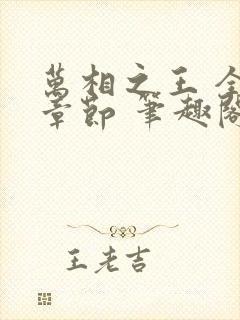 萬相之王 全
章節 筆趣閣
王老吉